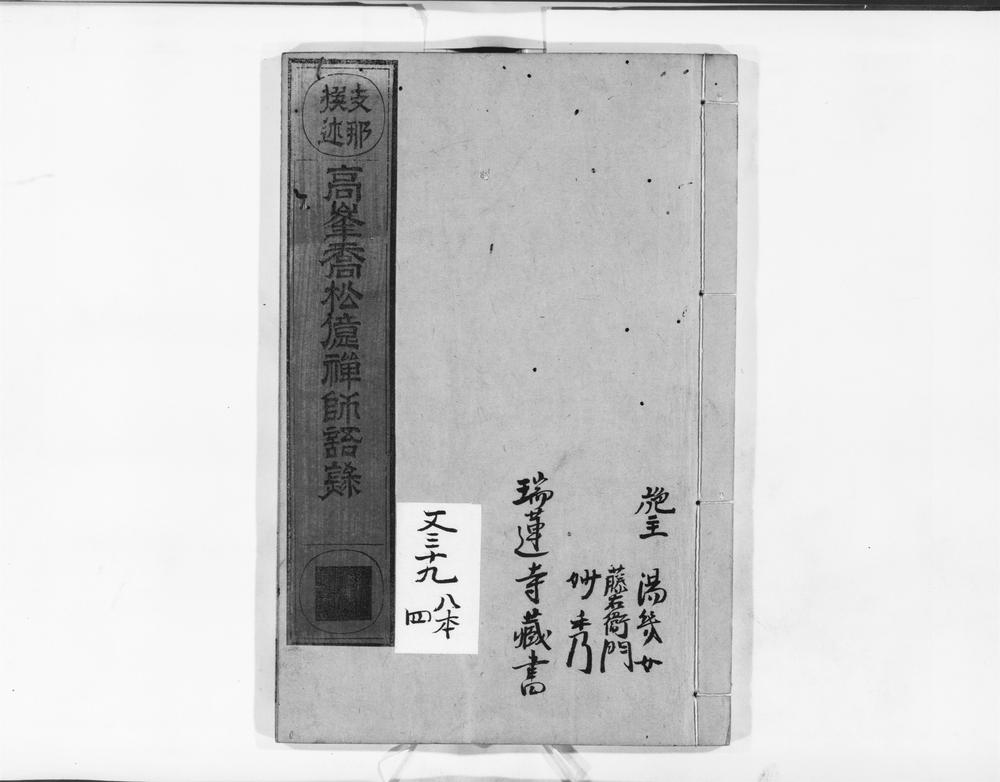 施主
藤右衛門
妙秀
瑞蓮寺藏書
又三十九
八本
四
支那
撰述
高峯喬松億禪師語錄